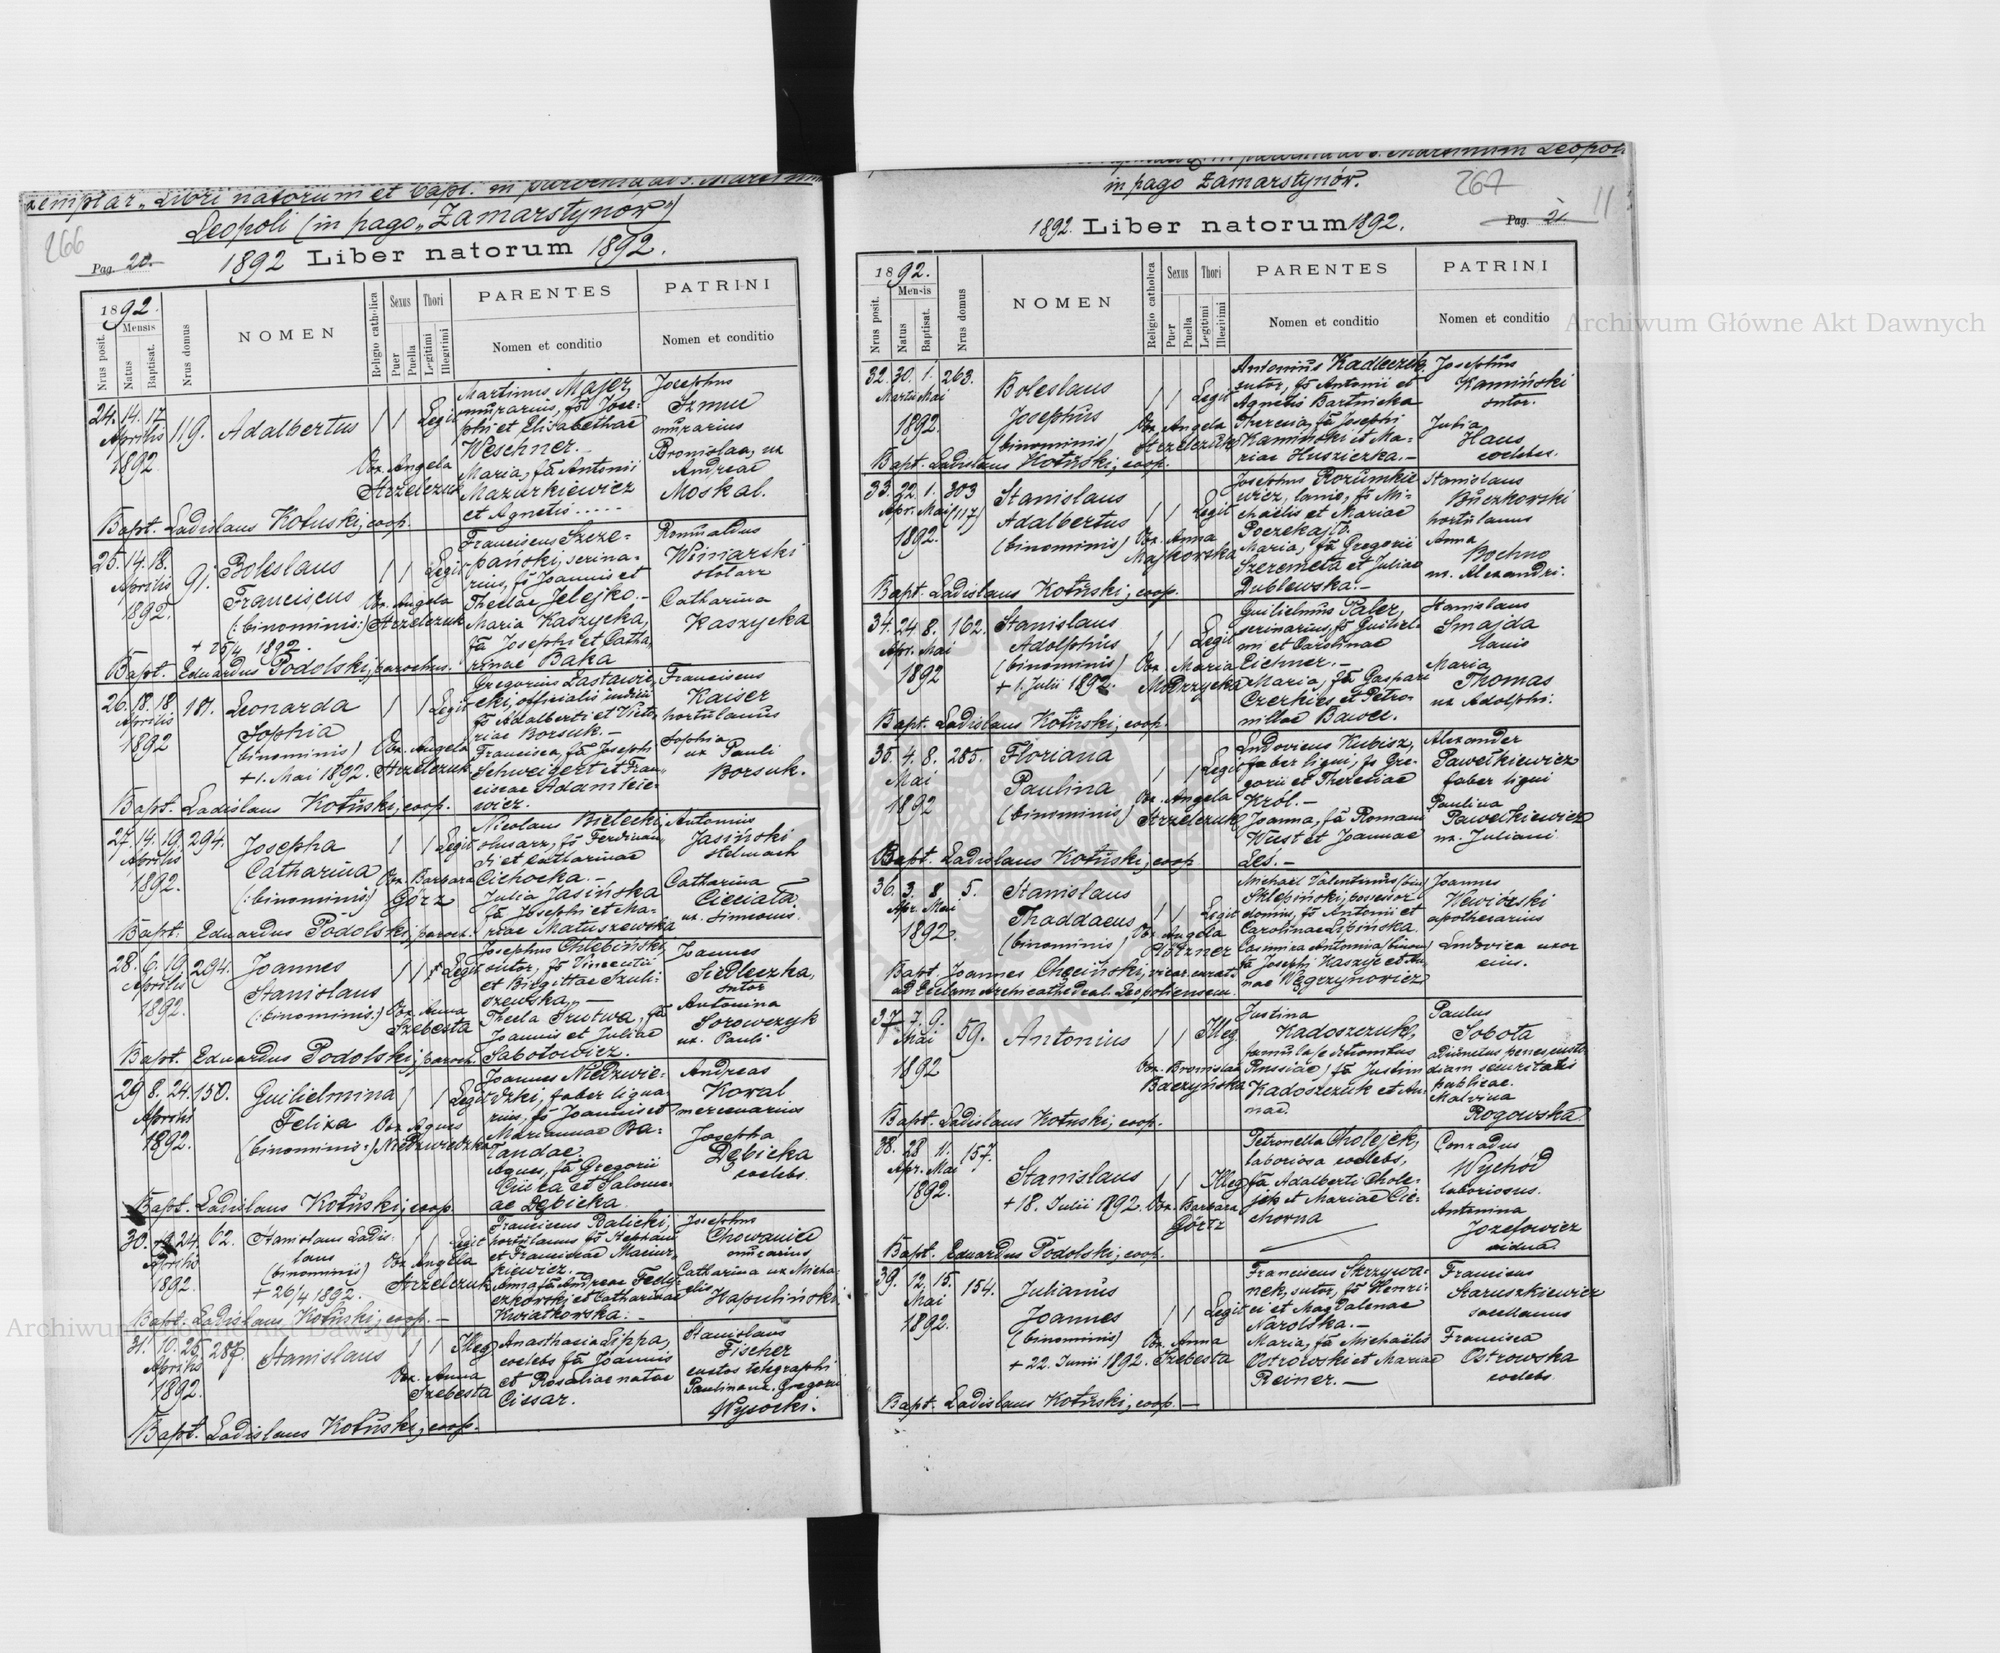 Exemplar „Libri natorum et bapt. in parochia ad S. Martinum
Leopoli (in pago „Zamarstynów”)
266
Pag. 20.
1892 Liber natorum 1892.
1892.
Mensis
Nrus posit.
Natus
Baptisat.
Nrus domus
NOMEN
Religio catholica
Sexus
Puer
Puella
Thori
Legitimi
Illegitimi
PARENTES
Nomen et conditio
PATRINI
Nomen et conditio
24. 14. 17. Aprilis 1892 119. Adalbertus Legit
Obx. Angela Strzelczuk
Martinus Majer,
murarius, fs Jose-
phi et Elisabethae
Weschner.–
Maria, fa Antonii
Mazurkiewicz
et Agnetis.....
Josephus
Szmuc
murarius
Bronislaa, ux
Andreae
Moskal.
Bapt. Ladislaus Kotuski, coop.
25. 14. 18. Aprilis 1892. 91. Boleslaus
Franciscus
(:binominis:)
+ 25/4 1892.
Legit
Obx. Angela Strzelczuk
Franciscus Szcze-
pański, scrina-
rius, fs Joannis et
Theclae Jelejko.–
Maria Kaszycka,
fa Josephi et Catha-
rinae Baka
Romualdus
Winiarski
stolarz
Catharina
Kaszycka
Bapt. Eduardus Podolski, parochus.
26. 18. 18. Aprilis 1892 181. Leonarda
Sophia
(binominis)
+ 1. Mai 1892.
Legit
Obx. Angela Strzelczuk
Gregorius Zastawie-
cki, officialis iudicii
fs Adalberti et Victo-
riae Borsuk.–
Francisca, fa Josephi
Schweigert et Fran-
ciscae Adamkie-
wicz.
Franciscus
Kaiser
hortulanus
Sophia
ux Pauli
Borsuk.
Bapt. Ladislaus Kotuski, coop.
27. 14. 19. Aprilis 1892. 294. Josepha
Catharina
(:binominis:)
Legit
Obx. Barbara Görz
Nicolaus Bielecki,
slusarz, fs Ferdinan-
di et Catharinae
Cichocka.–
Julia Jasińska
fa Josephi et Ma-
riae Matuszewska
Antonius
Jasiński
stelmach
Catharina
Cieciała
ux. Simeonis.
Bapt. Eduardus Podolski, paroch.
28. 6. 19. Aprilis 1892. 294. Joannes
Stanislaus
(:binominis:)
Legit
Obx. Anna Szebesta
Josephus Chlebiński,
sutor, fs Vincentii
et Birgittae Szuli-
szewska,–
Thecla Trutwa, fa
Joannis et Juliae
Sabotowicz.
Joannes
Siedleczka,
sutor
Antonina
Sorowczyk
ux. Pauli
Bapt. Eduardus Podolski, paroch.
29 8. 24. Aprilis 1892. 150. Guilielmina
Felixa
(binominis:)
Legit
Obx. Agnes Niedzwiedzka
Joannes Niedzwie-
dzki, faber ligna-
rius, fs Joannis et
Mariannae Ba-
landae.
Agnes, fa Gregorii
Ciurka et Salome-
ae Dębicka
Andreas
Kowal
mercenarius
Josepha
Dębicka
coelebs.
Bapt. Ladislaus Kotuski, coop
30. 24. Aprilis 1892. 62. Stanislaus Ladis-
laus
(binominis)
+ 26/4 1892.
Legit
Obx. Angela Strzelczuk
Franciscus Balicki,
hortulanus fs Stephani
et Franciscae Maciur-
kiewicz.
Anna, fa Andreae Fedy-
czkowski, et Catharinae
Kwiatkowska.–
Josephus
Chowaniec
murarius
Catharina ux Micha-
elis Hapulińska
Bapt. Ladislaus Kotuski, coop.–
31. 10. 25. Aprilis 1892. 287. Stanislaus Illeg
Obx. Anna Szebesta
Anasthasia Lippa,
coelebs fa Joannis
et Rosaliae natae
Cissar.
Stanislaus
Fischer
custos telegraphi
Paulina ux. Gregorii
Wysocki.
Bapt. Ladislaus Kotuski, coop.
in parochia ad S. Martinum Leopoli
in pago Zamarstynów.
267
11
1892. Liber natorum 1892.
Pag. 21.
1892.
Mensis
Nrus posit.
Natus
Baptisat.
Nrus domus
NOMEN
Religio catholica
Sexus
Puer
Puella
Thori
Legitimi
Illegitimi
PARENTES
Nomen et conditio
PATRINI
Nomen et conditio
32. 30. Martii 1. Mai 1892. 263. Boleslaus
Josephus
(binominis)
Legit
Obx. Angela Strzelczuk
Antonius Kadleczek,
sutor, fs Antonii et
Agnetis Bartnicka
Theresia, fa Josephi
Kamiński et Ma-
riae Husziczka.–
Josephus
Kamiński
sutor.
Julia
Haus
coelebs.
Bapt. Ladislaus Kotuski, coop.
33. 22. Apr. 1. Mai 1892. 303 (117) Stanislaus
Adalbertus
(binominis)
Legit
Obx. Anna Majkowska
Josephus Rozumkie
wicz, lanio, fs Mi-
chaëlis et Mariae
Poczekajło.
Maria, fa Gregorii
Szeremeta et Juliae
Dublewska.–
Stanislaus
Buczkowski
hortulanus
Anna
Bochno
m. Alexandri.
Bapt. Ladislaus Kotuski, coop.
34. 24. Apr. 8. Mai 1892 162. Stanislaus
Adolphus
(binominis)
+ 1. Julii 1892.
Legit
Obx. Maria Modrzycka
Guilielmus Paler,
scrinarius, fs Guiliel-
mi et Carolinae
Eichner.–
Maria, fa Gaspari
Czerkies et Petro-
nillae Bawec.
Stanislaus
Smajda
lanio
Maria
Thomas
ux Adolphi.
Bapt. Ladislaus Kotuski, coop.
35. 4. 8. Mai 1892 285. Floriana
Paulina
(binominis)
Legit
Obx. Angela Strzelczuk
Ludovicus Kubisz,
faber ligni, fs Gre-
gorii et Theresiae
Król.–
Joanna, fa Romani
Wust et Joannae
Leś.–
Alexander
Pawełkiewicz
faber ligni
Paulina
Pawełkiewicz
ux. Juliani
Bapt. Ladislaus Kotuski, coop
36. 3. Apr. 8 Mai 1892. 5. Stanislaus
Thaddaeus
(binominis)
Legit
Obx. Angela Plötzner
Michaël Valentinus (bin)
Sklepiński, possessor
domus, fs Antonii et
Carolinae Lipińska.
Casimira Antonina (binom)
fa Josephi Kaszyc et An-
nae Węgrzynowicz
Joannes
Wewiórski
apothecarius
Ludovica uxor
eius.
Bapt. Joannes Chęciński, vicar. curat.
ad Ecclam Archicathedral. Leopoliensem.
37. 7. 9. Mai 1892 59. Antonius Illeg.
Obx. Bronislaa Baczyńska
Justina
Kadoszczuk,
famula (e ditionibus
Russiae) fa Justini
Kadoszczuk et An-
nae.
Paulus
Sobota
adiunctus penes custo-
diam securitatis
publicae.
Malvina
Rogowska
Bapt. Ladislaus Kotuski, coop.
38. 28 Apr. 11. Mai 1892. 157. Stanislaus
+ 18. Julii 1892.
Illeg
Obx. Barbara Görtz
Petronella Cholejek,
laboriosa coelebs,
fa Adalberti Chole-
jek et Mariae Cie-
chorna
Conradus
Wychód
laboriosus.
Antonina
Jozefowicz
vidua.
Bapt. Eduardus Podolski, coop.
39. 12. 15. Mai 1892. 154. Julianus
Joannes
(binominis)
+ 22. Junii 1892.
Legit
Obx. Anna Szebesta
Franciscus Skrzywa-
nek, sutor, fs Henri-
ci et Magdalenae
Narolska.–
Maria, fa Michaëlis
Ostrowski et Mariae
Reiner.–
Franciscus
Staruszkiewicz
sacellanus
Francisca
Ostrowska
coelebs
Bapt. Ladislaus Kotuski, coop.–
Archiwum Główne Akt Dawnych
Archiwum Główne Akt Dawnych